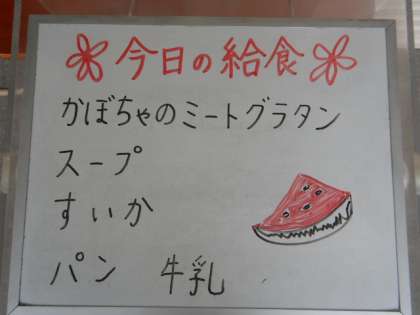 今日の給食
かぼちゃのミートグラタン
スープ
すいか
パン 牛乳